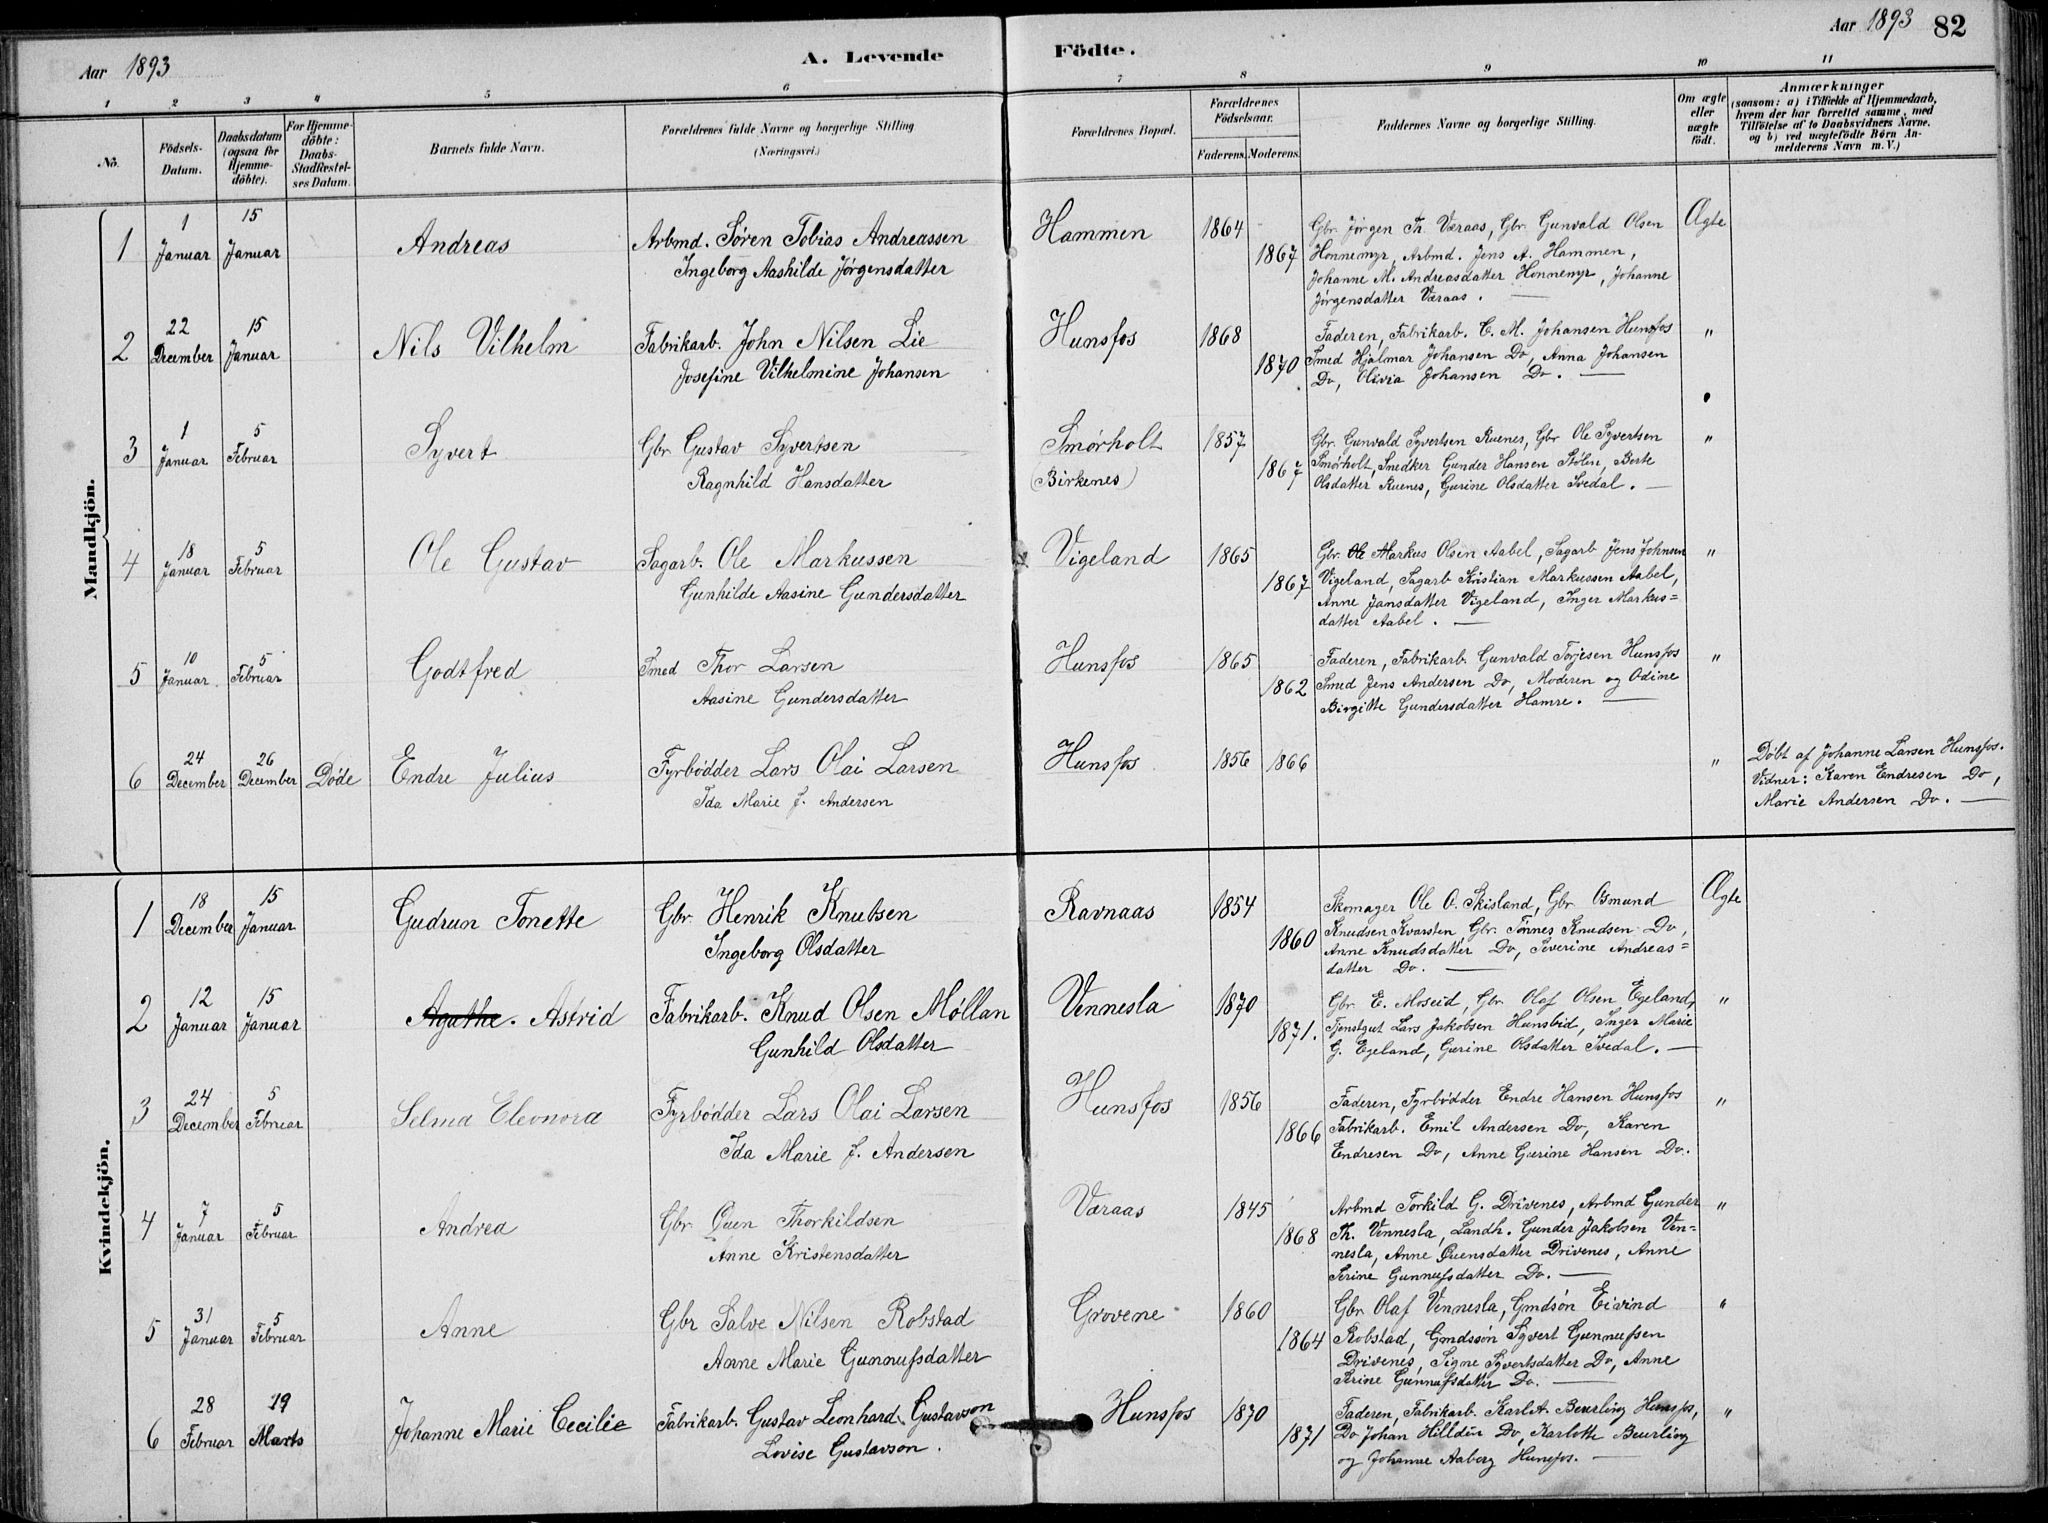 Aar 1893
A. Levende
Födte.
Aar 1893 82
1 2 3 4 5 6 7 8 9 10 11
No.
Födsels-
Datum.
Daabsdatum
(ogsaa for
Hjemme-
döbte).
For Hjemme-
döbte:
Daabs-
Stadfæstel-
ses Datum.
Barnets fulde Navn.
Forældrenes fulde Navne og borgerlige Stilling
(Næringsvei.)
Forældrenes Bopæl.
Forældrenes
Födselsaar.
Faderens. Moderens.
Faddernes Navne og borgerlige Stilling.
Om ægte
eller
uægte
födt.
Anmærkninger
(saasom: a) i Tilfælde af Hjemmedaab,
hvem der har forrettet samme, med
Tilföielse af to Daabsvidners Navne.
og b) ved uægtefödte Börn An-
melderens Navn m. V.)
Mandkjön.
1
1
Januar
15
Januar
Andreas
Arbmd. Søren Tobias Andreassen
Ingeborg Aashilde Jørgensdatter
Hammen
1864
1867
Gbr. Jørgen Th. Væraas, Gbr. Gunvald Olsen
Honnemyr, Arbmd. Jens A. Hammen,
Johanne M. Andreasdatter Honnemyr, Johanne
Jørgensdatter Væraas. —
Ægte
2
22
December
15
Januar
Nils Vilhelm
Fabrikarb. John Nilsen Lie
Josefine Vilhelmine Johansen
Hunsfos
1868
1870
Faderen, Fabrikarb. C. M. Johansen Hunsfos
Smed Hjalmar Johansen Do, Anna Johansen
Do, Olivia Johansen Do. —
"
3
1
Januar
5
Februar
Syvert
Gbr. Gustav Syvertsen
Ragnhild Hansdatter
Smørholt
(Birkenes)
1857
1867
Gbr. Gunvald Syvertsen Ruenes, Gbr Ole Syvertsen
Smørholt, Snedker Gunder Hansen Stølen, Berte
Olsdatter Ruenes, Gurine Olsdatter Svedal. —
"
4
18
Januar
5
Februar
Ole Gustav
Sagarb. Ole Markussen
Gunhilde Aasine Gundersdatter
Vigeland
1865
1867
Gbr. Ole Markus Olsen Aabel, Sagarb Jens Johnsen
Vigeland, Sagarb Kristian Markussen Aabel,
Anne Jansdatter Vigeland, Inger Markus=
datter Aabel. —
"
5
10
Januar
5
Februar
Godtfred
Smed Thor Larsen
Aasine Gundersdatter
Hunsfos
1865
1862
Faderen, Fabrikarb. Gunvald Torjesen Hunsfos
Smed Jens Andersen Do, Moderen og Odine
Birgitte Gundersdatter Hamre. —
"
6
24
December
26
December
Døde
Endre Julius
Fyrbødder Lars Olai Larsen
Ida Marie J. Andersen
Hunsfos
1856 1866
"
Døbt af Johanne Larsen Hunsfos.
Vidner: Karen Endresen Do,
Marie Andersen Do. —
Kvindekjön.
1
18
December
15
Januar
Gudrun Tonette
Gbr. Henrik Knutsen
Ingeborg Olsdatter
Ravnaas
1854
1860
Skomager Ole O. Skisland, Gbr. Osmund
Knudsen Kvarsten, Gbr. Tønnes Knudsen Do,
Anne Knudsdatter Do, Severine Andreas=
datter Do. —
Ægte
2
12
Januar
15
Januar
Agathe. Astrid
Fabrikarb. Knud Olsen Møllan
Gunhild Olsdatter
Vennesla
1870
1871.
Gbr. E. Moseid, Gbr. Olaf Olsen Egeland,
Tjenstgut Lars Jakobsen Hunsbid, Inger Marie
G. Egeland, Gurine Olsdatter Svedal. —
"
3
24
December
5
Februar
Selma Eleonora
Fyrbødder Lars Olai Larsen
Ida Marie J. Andersen
Hunsfos
1856
1866
Faderen, Fyrbødder Endre Hansen Hunsfos
Fabrikarb. Emil Andersen Do, Karen
Endresen Do, Anne Gurine Hansen Do.
"
4
7
Januar
5
Februar
Andrea
Gbr. Øuen Thorkildsen
Anne Kristensdatter
Væraas
1845
1868
Arbmd Torkild G. Drivenes, Arbmd Gunder
Th. Vennesla, Landh. Gunder Jakobsen Ven=
nesla, Anne Øuensdatter Drivenes, Anne
Serine Gunnufsdatter Do. —
"
5
31
Januar
5
Februar
Anne
Gbr Salve Nilsen Robstad
Anne Marie Gunnufsdatter
Grovene
1860
1864
Gbr. Olaf Vennesla, Gmdsøn Eivind
Robstad, Gmdssøn Syvert Gunnufsen
Drivenes, Signe Syvertsdatter Do, Anne
Serine Gunnufsdatter Do. —
"
6
28
Februar
19
Marts
Johanne Marie Cecilie
Fabrikarb. Gustav Leonhard Gustavson
Lovise Gustavson.
Hunsfos
1870
1871
Faderen, Fabrikarb. Karl A. Beurling Hunsfos,
Do Johan Hilldin Do, Karlotte Beurling
og Johanne Aaberg Hunsfos. —
"